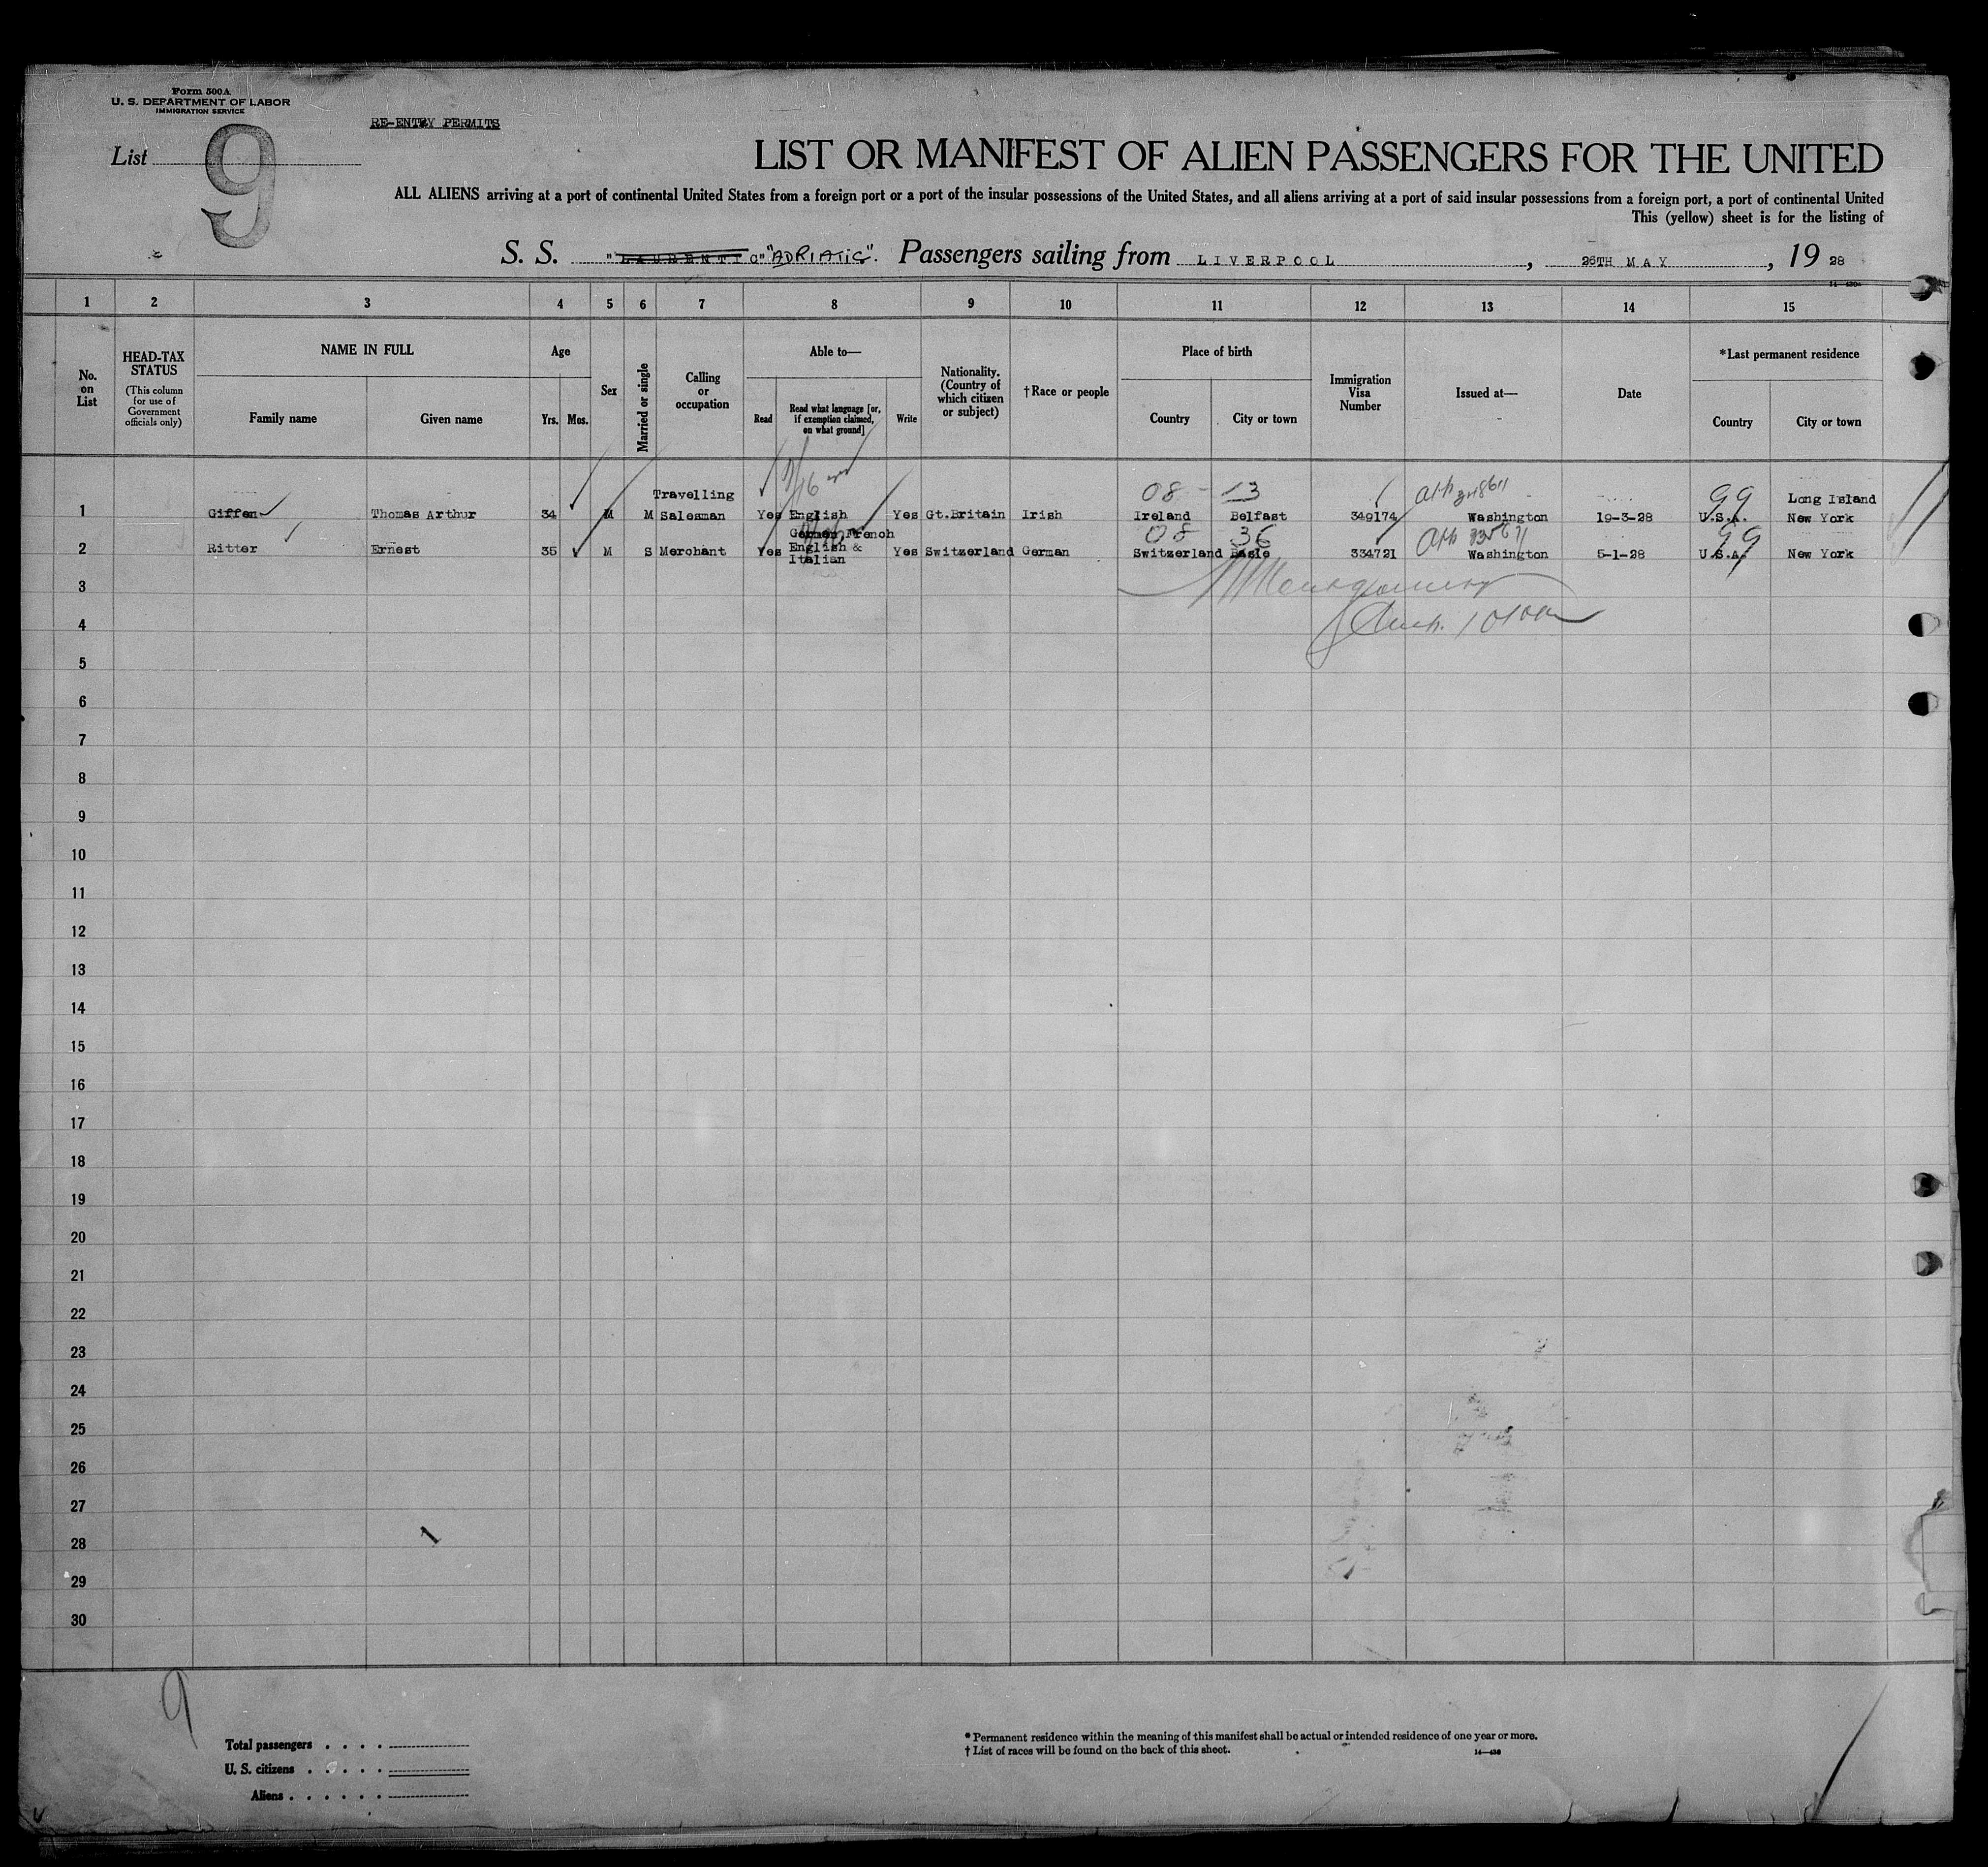 Form 500A
U. S. DEPARTMENT OF LABOR
IMMIGRATION SERVICE
RE-ENTRY PERMITS
List 9
LIST OR MANIFEST OF ALIEN PASSENGERS FOR THE UNITED
ALL ALIENS arriving at a port of continental United States from a foreign port or a port of the insular possessions of the United States, and all aliens arriving at a port of said insular possessions from a foreign port, a port of continental United
This (yellow) sheet is for the listing of
S. S. "LAURENTIC" "ADRIATIC". Passengers sailing from LIVERPOOL, 26TH MAY, 1928
1 2 3 4 5 6 7 8 9 10 11 12 13 14 15
No. on List
HEAD-TAX STATUS
(This column for use of Government officials only)
NAME IN FULL
Family name
Given name
Age
Yrs.
Mos.
Sex
Married or single
Calling or occupation
Able to—
Read
Read what language [or, if exemption claimed, on what ground]
Write
Nationality. (Country of which citizen or subject)
†Race or people
Place of birth
Country
City or town
Immigration Visa Number
Issued at—
Date
*Last permanent residence
Country
City or town
08 - 13 99
Travelling Long Island
1 Giffen Thomas Arthur 34 M M Salesman Yes English Yes Gt.Britain Irish Ireland Belfast 349174 Washington 19-3-28 U.S.A. New York
German, French 08 36 99
2 Ritter Ernest 35 M S Merchant Yes English & Yes Switzerland German Switzerland Basle 334721 Washington 5-1-28 U.S.A. New York
Italian
3 Montgomery
4
5
6
7
8
9
10
11
12
13
14
15
16
17
18
19
20
21
22
23
24
25
26
27
28
29
30
9
Total passengers . . . .
U. S. citizens . . . . .
Aliens . . . . . .
* Permanent residence within the meaning of this manifest shall be actual or intended residence of one year or more.
† List of races will be found on the back of this sheet.
14—430